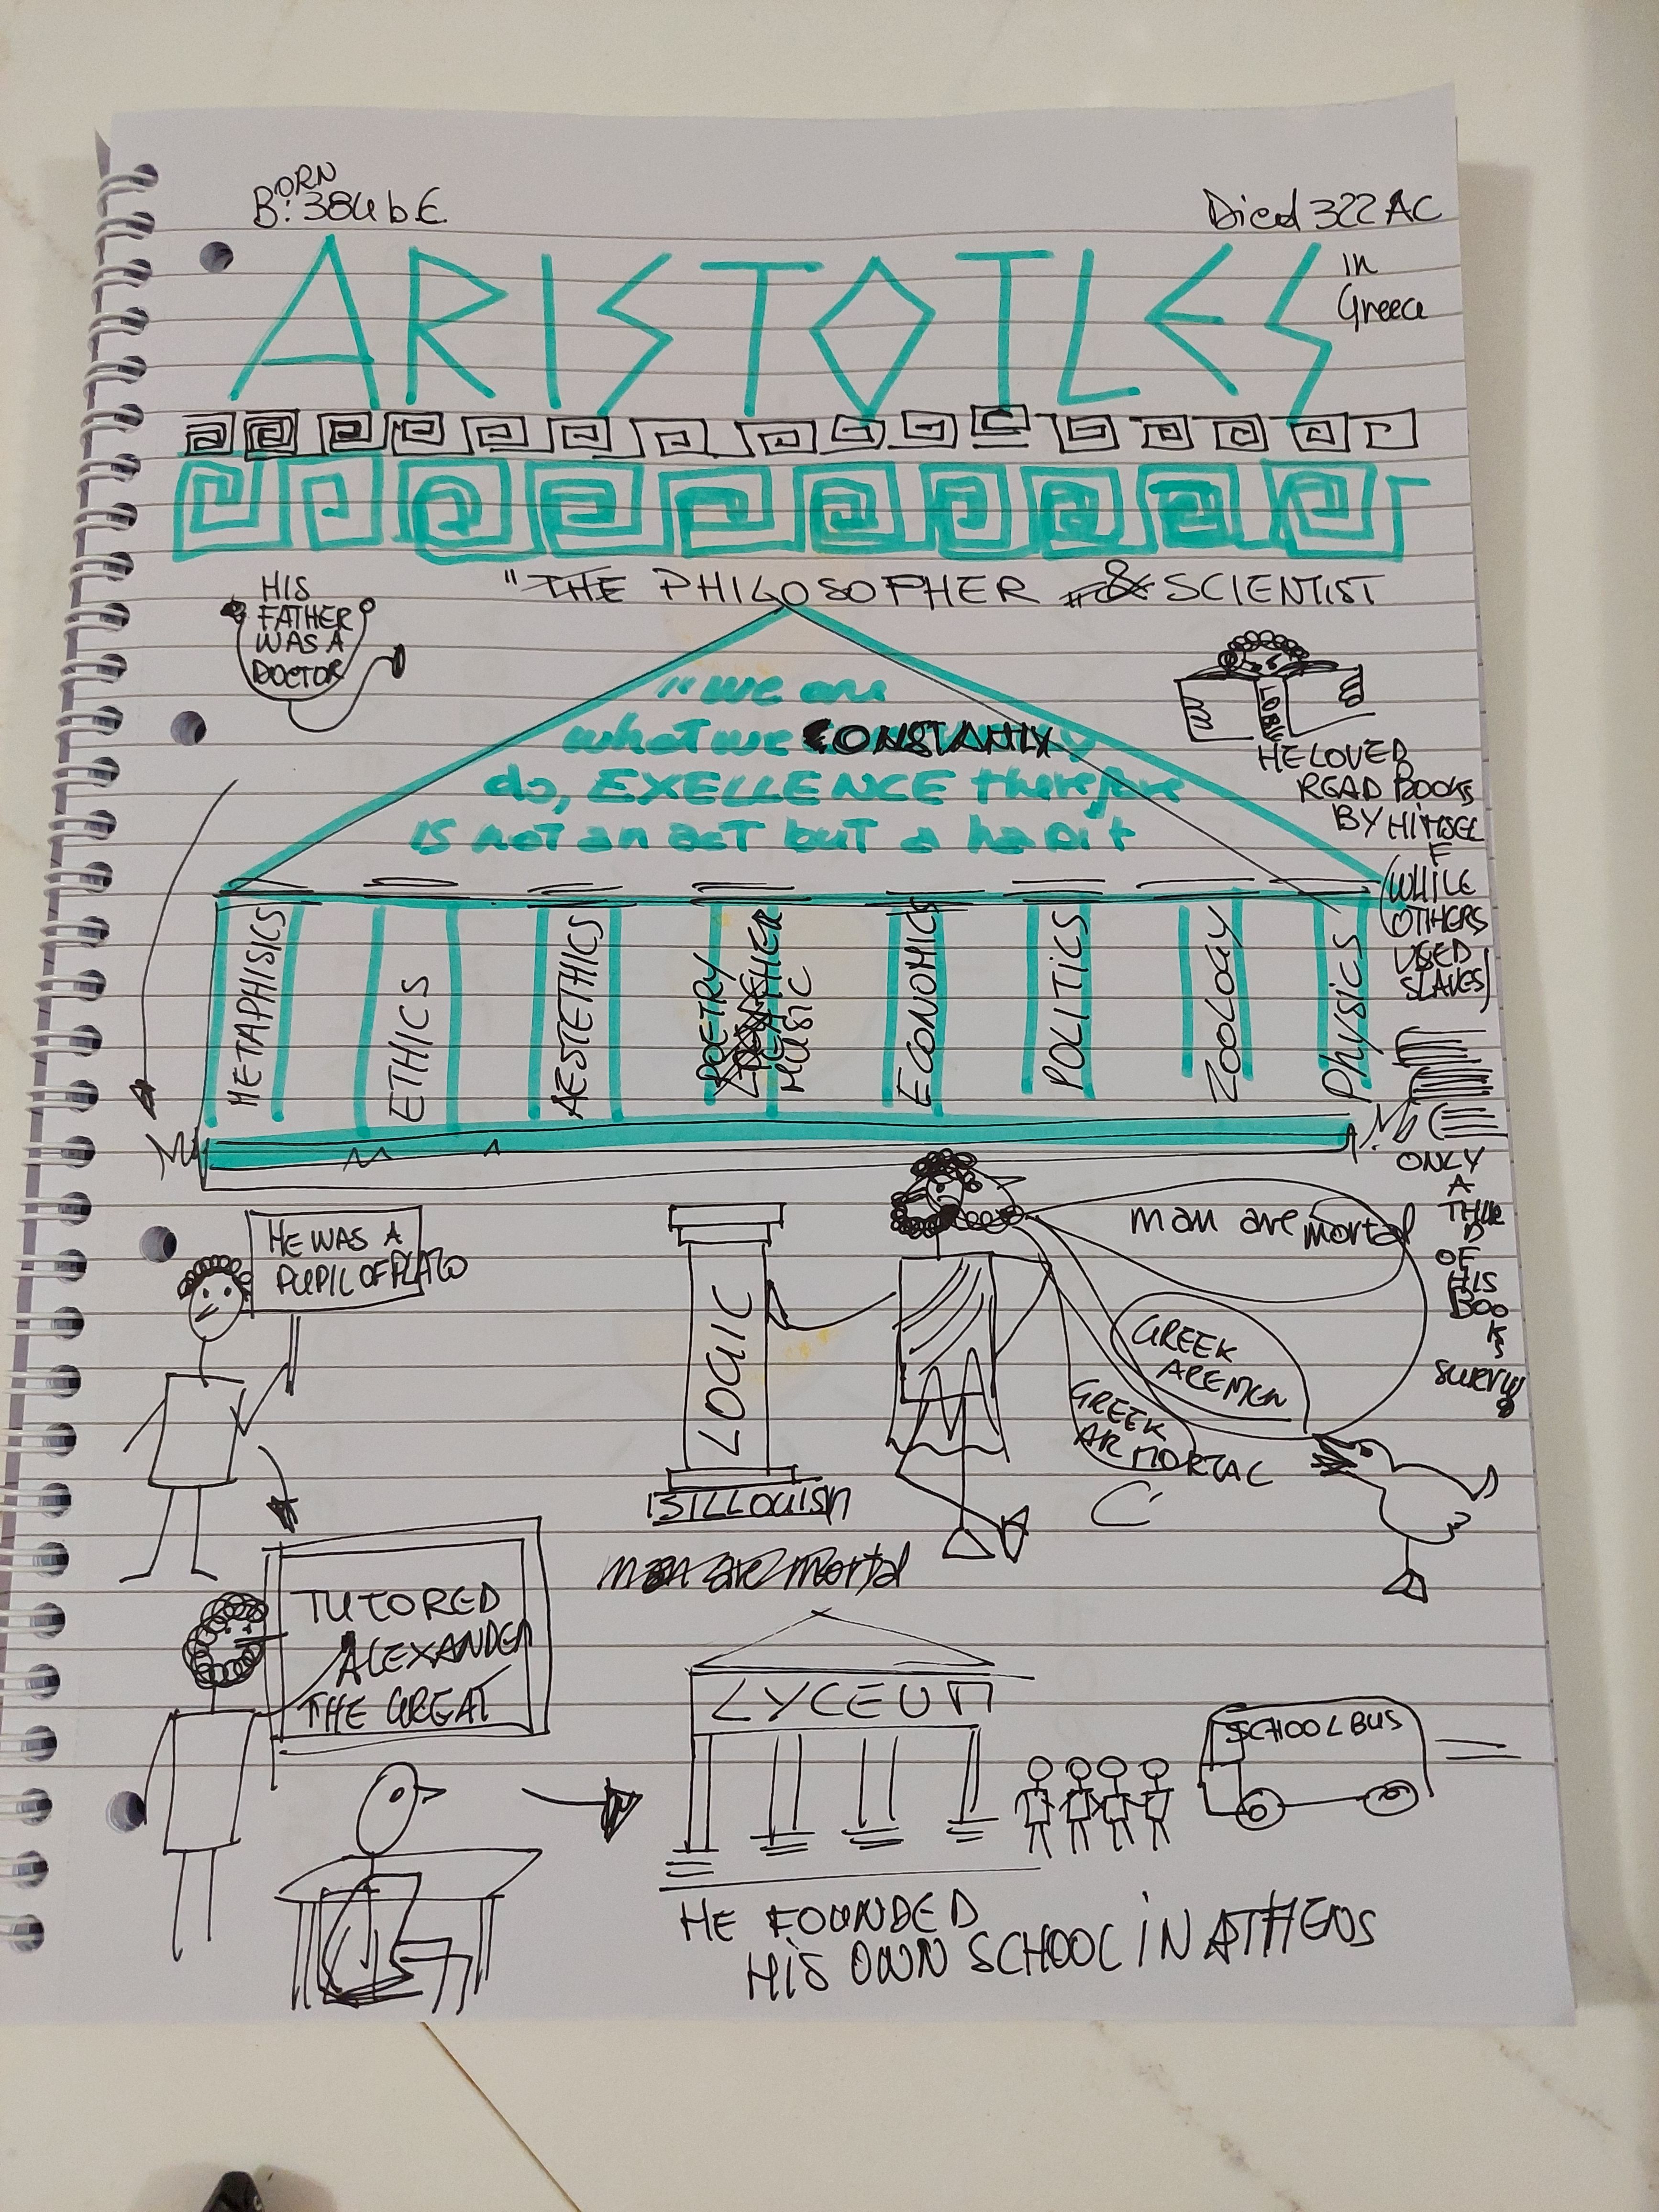 BORN: 384 b.C.
Died 322 AC
in
Greece
ARISTOTLES
"THE PHILOSOPHER & SCIENTIST
HIS
FATHER
WAS A
DOCTOR
"we are
what we CONSTANTLY
do, EXELLENCE therefore
IS not an act but a habit
HE LOVED
READ BOOKS
BY HIMSEL
F
(WHILE
OTHERS
USED
SLAVES)
METAPHISICS
ETHICS
AESTETHICS
POETRY
MUSIC
ECONOMICS
POLITICS
ZOOLOGY
PHYSICS
ONLY
A
THIR
D
OF
HIS
BOO
KS
HE WAS A
PUPIL OF PLATO
LOGIC
SILLOGISM
man are mortal
GREEK
ARE MEN
GREEK
AR MORTAL
man are mortal
TUTORED
ALEXANDER
THE GREAT
LYCEUM
SCHOOL BUS
HE FOUNDED
HIS OWN SCHOOL IN ATHENS